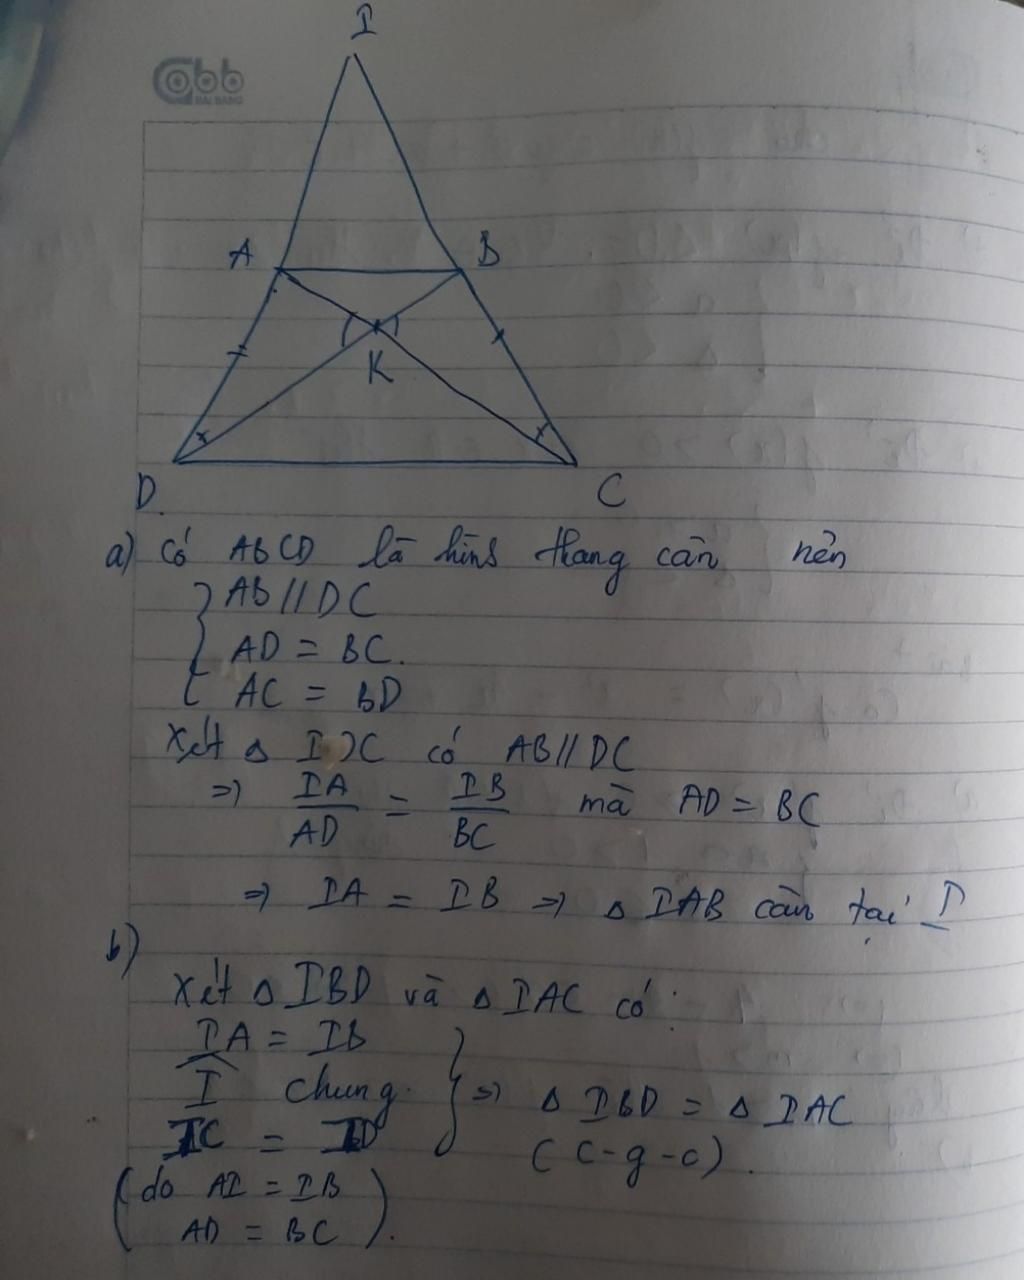 I
Cobb
HẢI BẰNG
A
B
K
D
C
a) Có ABCD là hình thang cân nên
{ AB // DC
AD = BC.
AC = BD
Xét Δ IDC có AB // DC
=> IA/AD = IB/BC mà AD = BC
=> IA = IB => Δ IAB cân tại I
b)
Xét Δ IBD và Δ IAC có:
IA = IB
Î chung.
IC = ID
} => Δ IBD = Δ IAC
(c-g-c).
(do AI = IB
AD = BC).